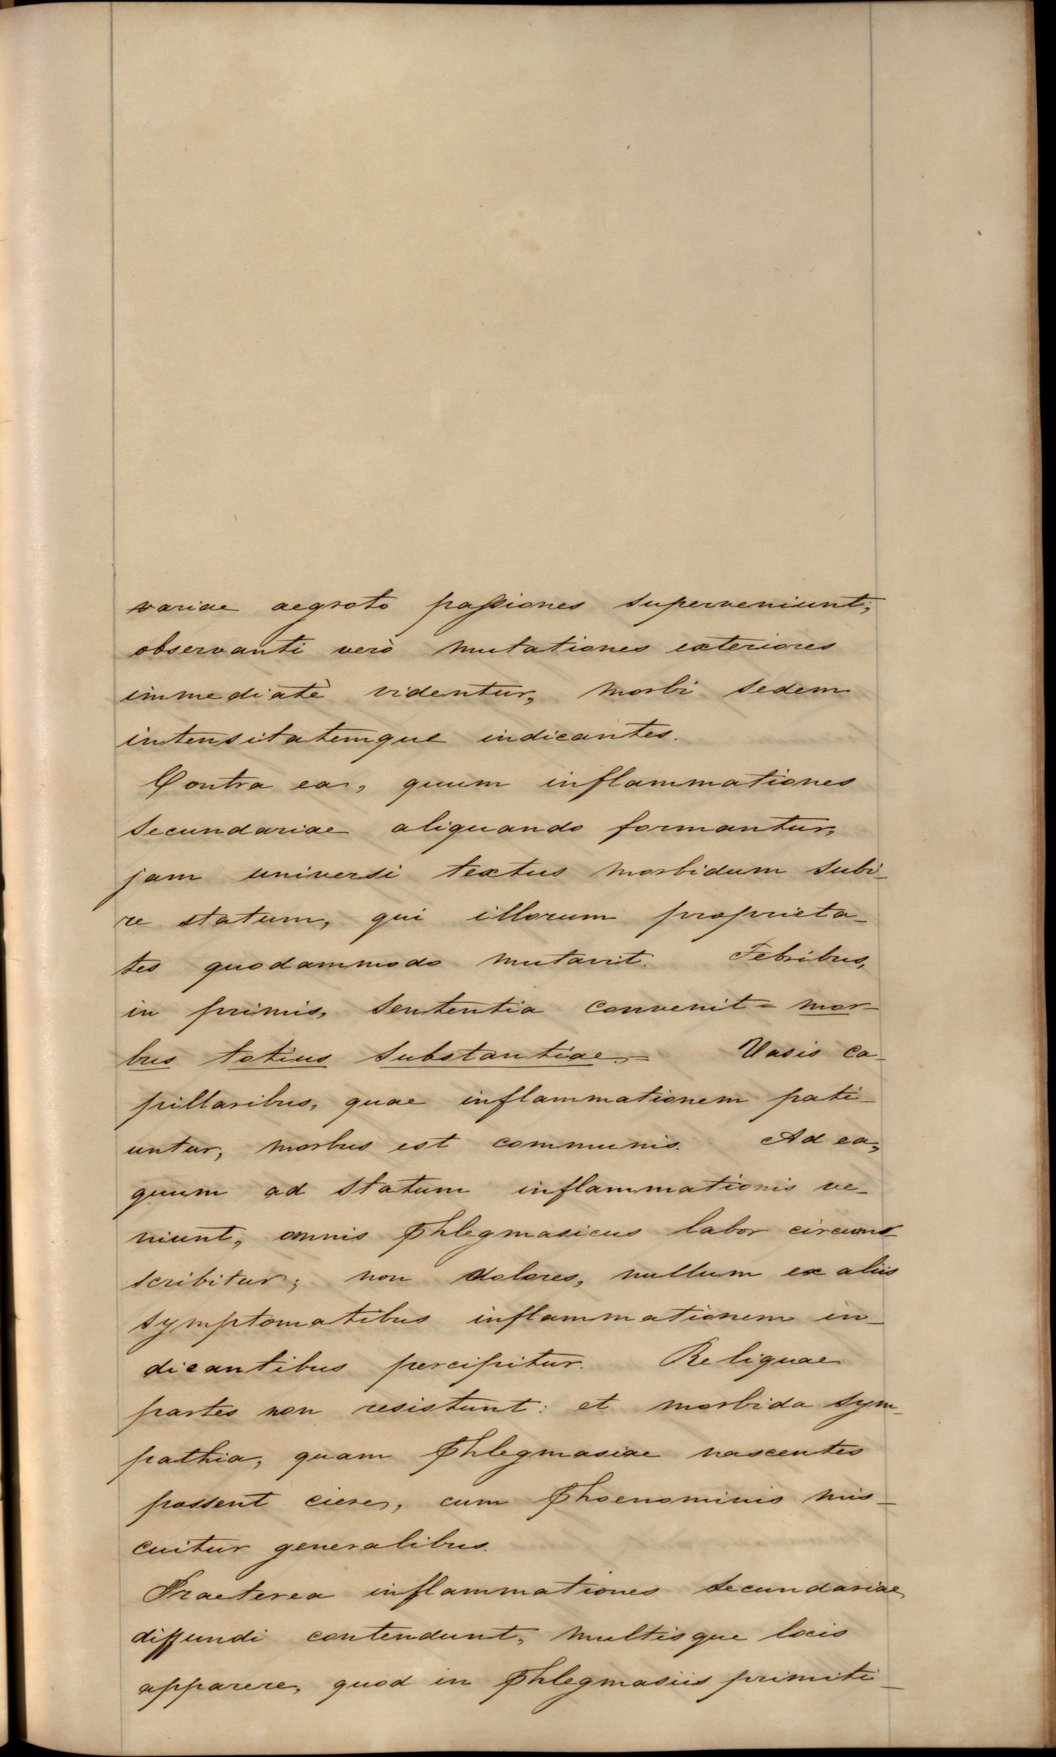 variae aegroto passiones superveniunt;
observanti verò mutationes exteriores
immediatè videntur, morbi sedem
intensitatemque indicantes.
Contra ea, quum inflammationes
secundariae aliquando formantur,
jam universi textus morbidum subi-
re statum, qui illorum proprieta-
tes quodammodo mutavit. Febribus,
in primis, sententia convenit = mor-
bus totius substantiae. = Vasis ca-
pillaribus, quae inflammationem pati-
untur, morbus est communis. Ad ea,
quum ad statum inflammationis ve-
niunt, omnis phlegmasicus labor circums-
scribitur; non dolores, nullum ex aliis
symptomatibus inflammationem in-
dicantibus percipitur. Reliquae
partes non resistunt: et morbida sym-
pathia, quam phlegmasiae nascentes
possent ciere, cum phoenominis mis-
cuitur generalibus.
Praeterea inflammationes secundariae
diffundi contendunt, multisque locis
apparere, quod in phlegmasiis primiti-